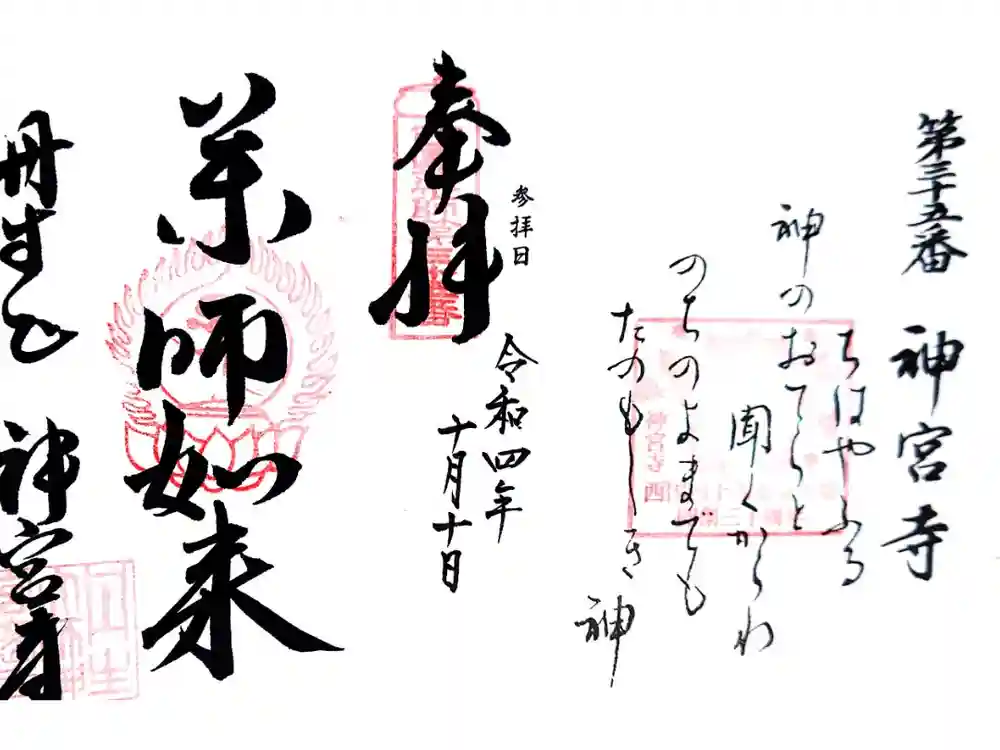 第三十五番 神宮寺
ちはやふる
神のおてらと
聞くからわ
のちのよまでも
たのもしき
神
参拝日
奉拝
令和四年
十月十日
薬師如来
丹生山 神宮寺
神宮寺